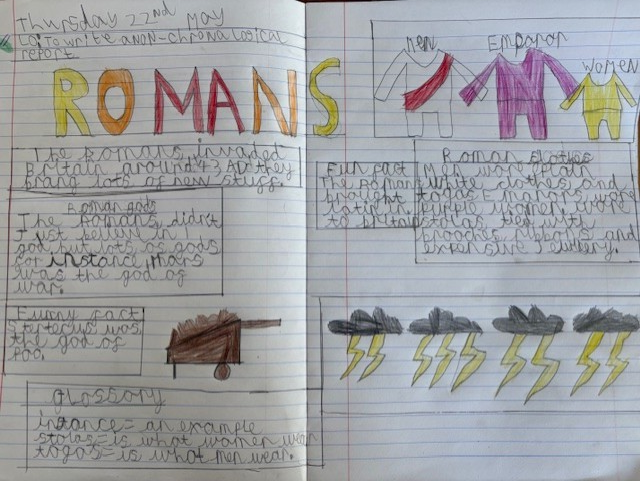 Thursday 22nd May
LO: To write a non-chronological
report.
ROMANS
The Romans invaded
Britain around 43 AD they
brang lots of new stuff.
Roman gods
The Romans didn't
just belive in 1
god but lots of gods
for instance, Mars
was the god of
war.
Funny fact
Stertecus was
the god of
poo.
glossory
instance= an example
stolas=is what women wear
togas=is what men wear.
Men
Emporor
Women
Fun fact
The Romans
brought
latin
to Britain
Roman clothes
Men wore plain
white clothes and
togas
women wore
and
expensive